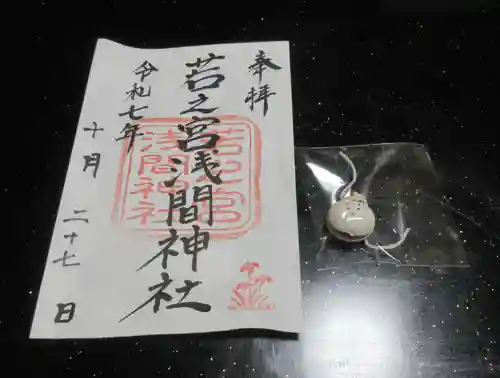 奉拝
若之宮浅間神社
令和七年
十月
二十七日
若之宮
浅間神社